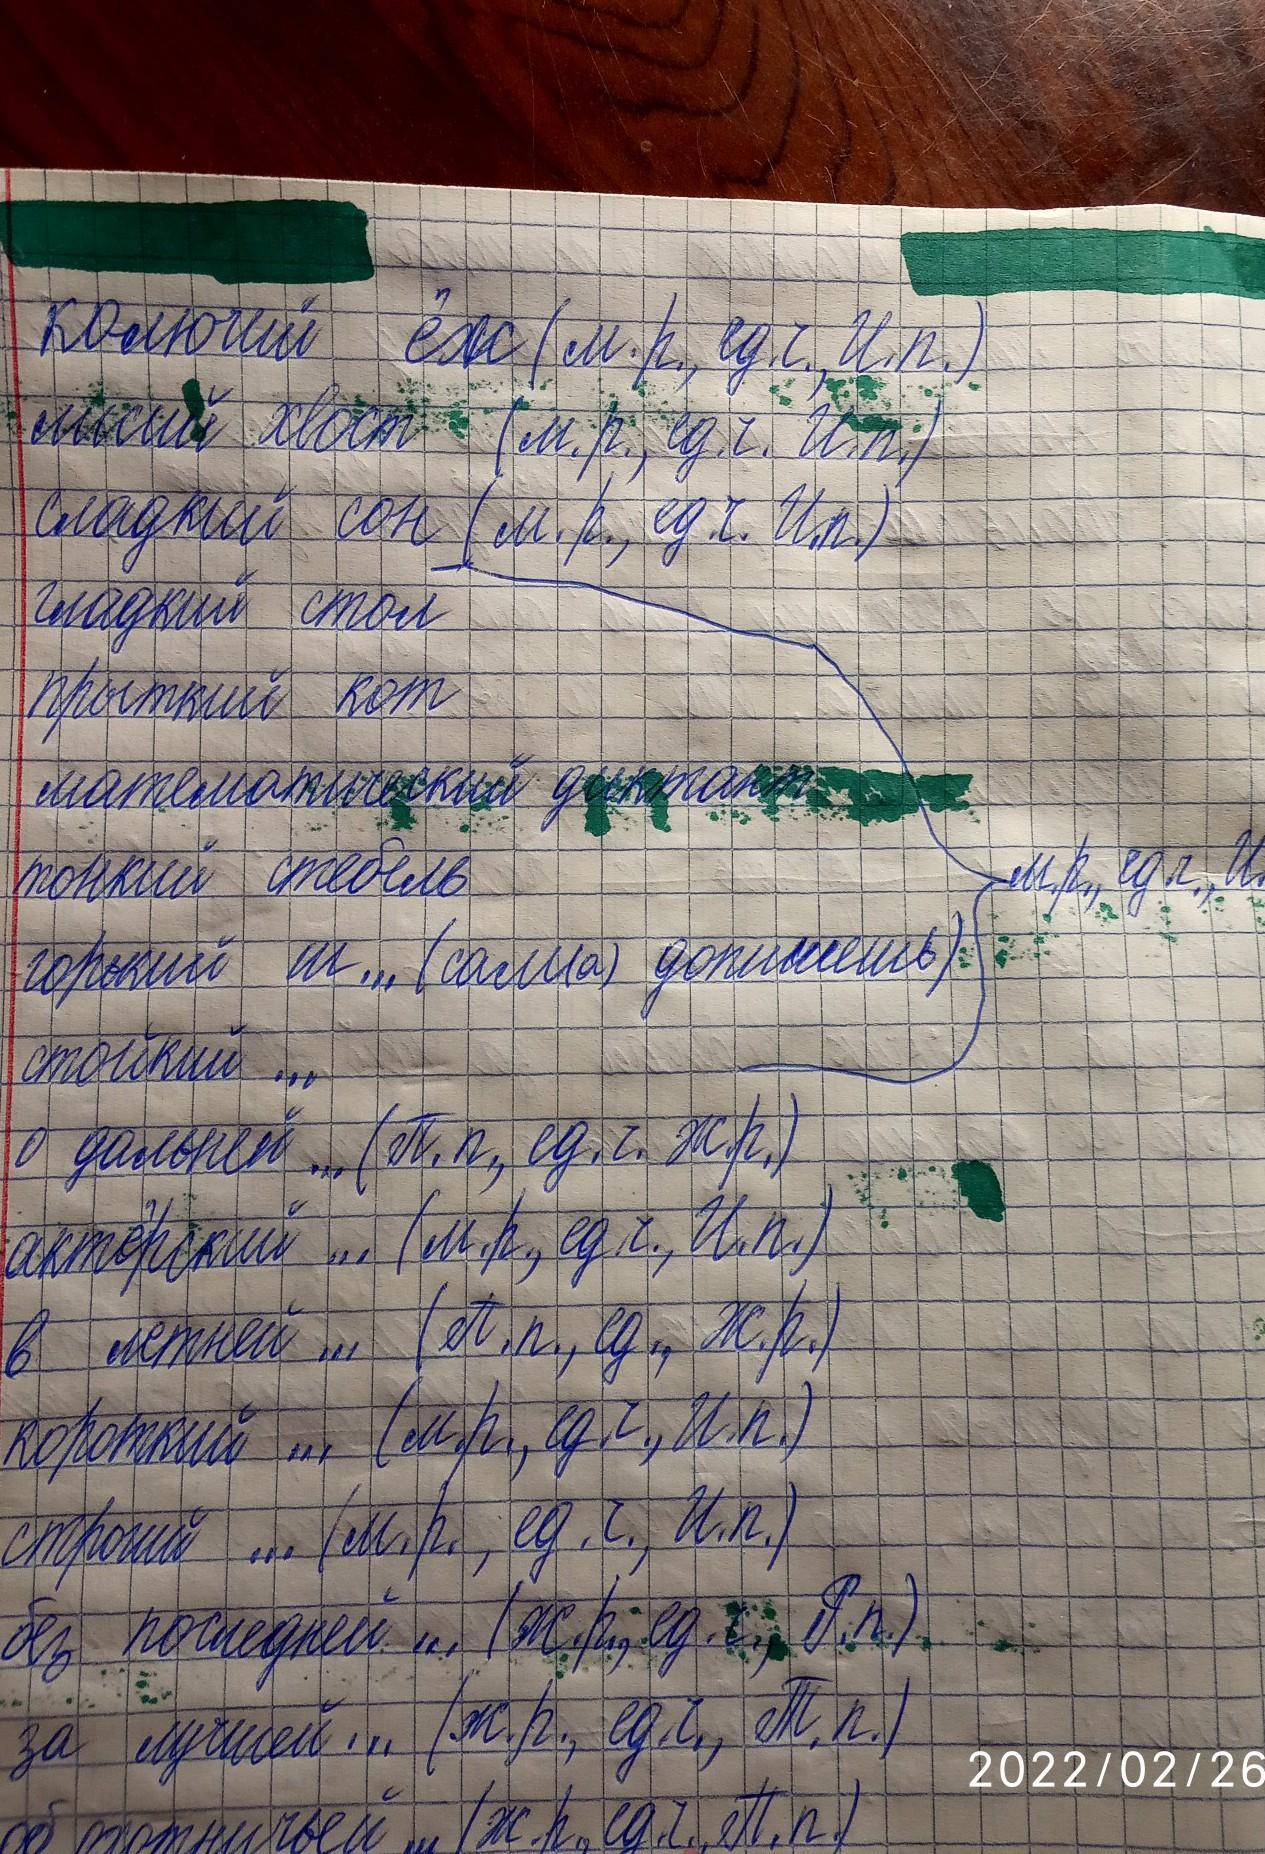 колючий ёж (м.р., ед.ч., И.п.)
лисий хвост (м.р., ед.ч. И.п.)
сладкий сон (м.р., ед.ч. И.п.)
гладкий стол
прыткий кот
математический диктант
тонкий стебель
м.р., ед.ч., И.
горький ш... (сам(а) допишешь)
стойкий ...
о дальней ... (П.п., ед.ч. ж.р.)
актёрский ... (м.р., ед.ч., И.п.)
в летней ... (П.п., ед., ж.р.)
короткий ... (м.р., ед.ч., И.п.)
строгий ... (м.р., ед.ч., И.п.)
без последней ... (ж.р., ед.ч., Р.п.)
за лучшей ... (ж.р., ед.ч., Т.п.)
2022/02/26
об охотничьей ... (ж.р., ед.ч., П.п.)